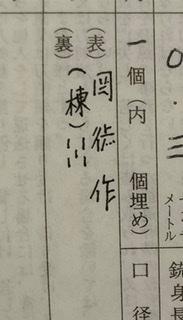 メートル
銃身長
一個(内 個埋め)
口径
(表) 作
(裏)
(棟)